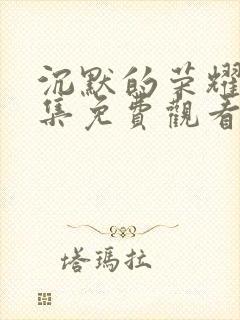 沉默的荣耀
集免費觀看
塔瑪拉